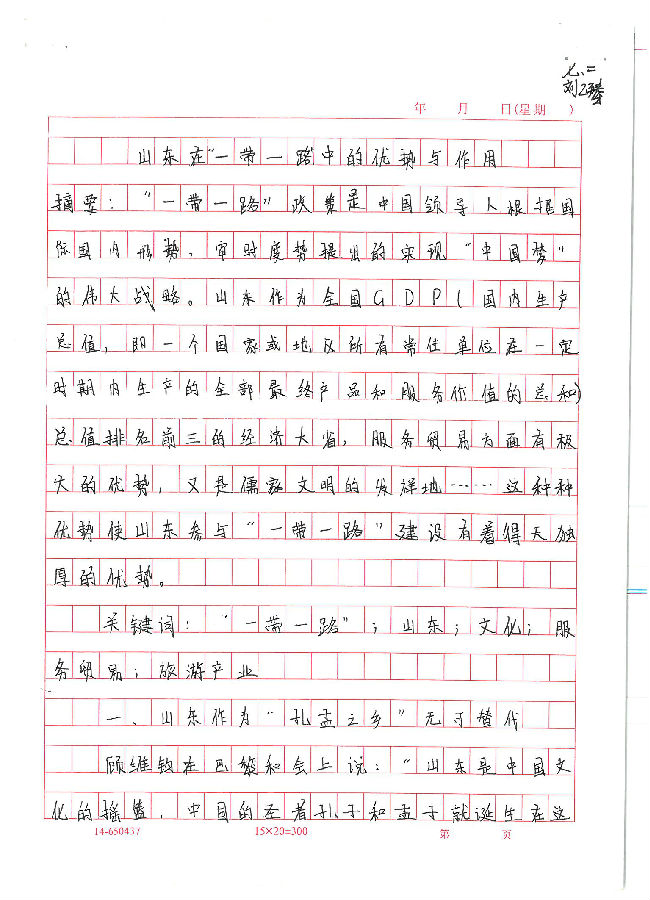 七、二
刘
年 月 日(星期 )
山东在“一带一路”中的优势与作用
摘要：“一带一路”政策是中国领导人根据国
际国内形势，审时度势提出的实现“中国梦”
的伟大战略。山东作为全国GDP(国内生产
总值，即一个国家或地区所有常住单位在一定
时期内生产的全部最终产品和服务价值的总和)
总值排名前三的经济大省，服务贸易方面有极
大的优势，又是儒家文明的发祥地……这种种
优势使山东参与“一带一路”建设有着得天独
厚的优势。
关键词：“一带一路”；山东；文化；服
务贸易；旅游产业
一、山东作为“孔孟之乡”无可替代
顾维钧在巴黎和会上说：“山东是中国文
化的摇篮，中国的圣者孔子和孟子就诞生在这
14-65043 15×20=300 第 页